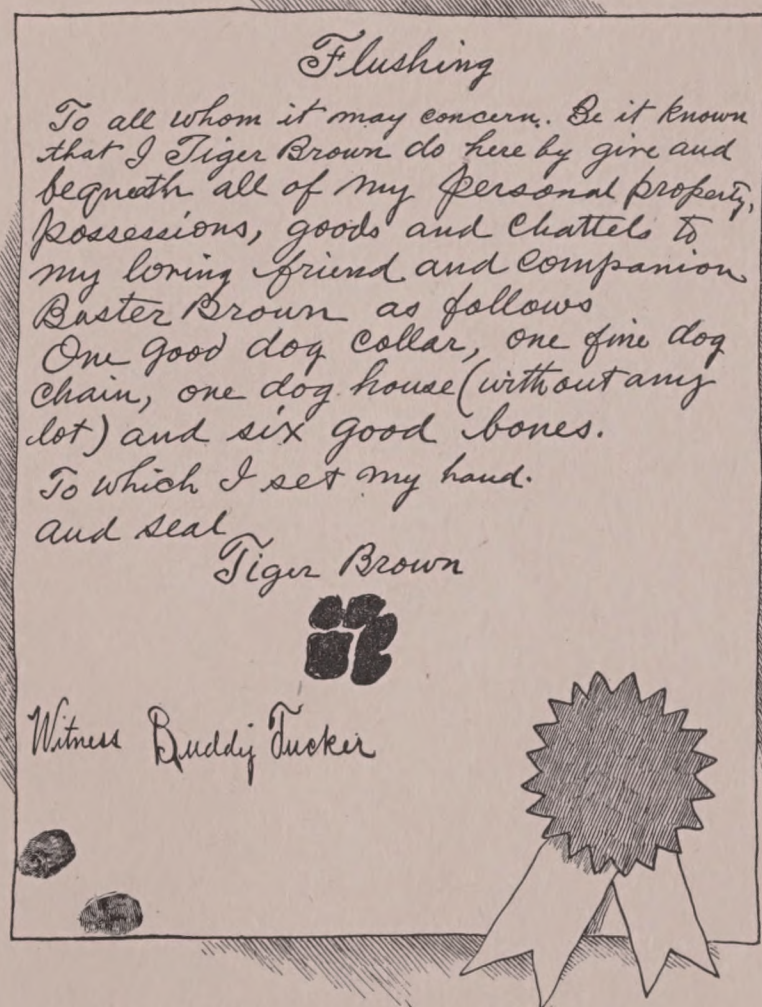 Flushing
To all whom it may concern. Be it known
that I Tiger Brown do here by give and
bequeath all of my personal property,
possessions, goods and chattels to
my loving friend and companion
Buster Brown as follows
One good dog collar, one fine dog
chain, one dog house (without any
lot) and six good bones.
To which I set my hand.
and seal
Tiger Brown
Witness Buddy Tucker